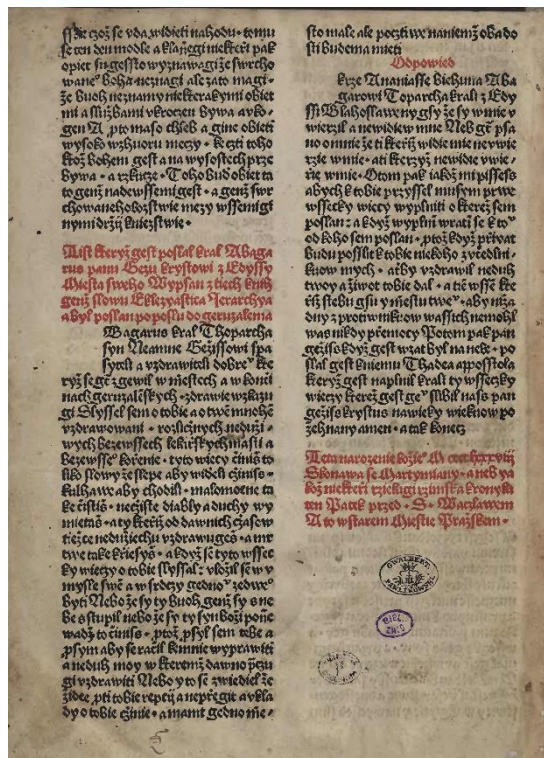 se ten den modle a klanegi niekteři pak
opiet su gessto wyznawagi že swrcho
waneº boha neznagi ale zato magi
že buoh neznamy niekterakymi obiet
mi a službami vkrocen bywa a w ko
gen A pto maso chleb a gine obieti
wysoko wzhuoru meczy ktoż bohem gest a na wysostech prze
bywa a rzkucze Toho bud obiet ta
to genž nade wssemi gest a genž swr
chowaneho božstwie mezy wssemi gi
nymi držij knieżstwie
List kteryž gest poslal kral Abaga
rus panu Gezu krystowi z Edyssy
Miesta sweho Wypsan z tiech knih
genž slowu Eklezyastica Jerarchya
a byl poslan po poslu do geruzalema
Abagarus kral Thoparcha
syn Geżissowi spa
syteli a vzdrawiteli dobreº kte
ryž se gt zgewil w miestech a w konči
nach geruzalemskych zdrawie wzkazu
gi Slyssel sem o tobie a o twe mnohe
vzdrawowani rozlicznych neduži
wych beze wssech lekařskych masti a
beze wsseº kořenie tyto wieczy činiss to
liko slowy že slepe aby wideli cziniss
kulhawe aby chodili malomocne ta
ke čistiss nečiste diably a duchy wy
mietass a ty kteřiž od dawnich časew
tiežce neduziechu vzdrawugess a mr
twe take křiesyss a když se tyto wssec
ky wieczy o tobie slyssal vložil sem w
mysle swe a w srdczy gedno zedwuº
byti Nebo že sy ty Buoh genž sy s ne
be stupil nebo že sy ty syn boži pone
wadž to činiss protož psyl sem tobe a
prsym aby se račil ke mnie wyprawiti
a neduh moy w kteremž dawno pracu
gi vzdrawiti Nebo y to se zwiediel že
židee proti tobie reptij a nepřegie a vkla
dy o tobie čzinie a mam t gedno mie
sto male ale poczti we na niemž oba do
sti budema mieti
Odpowied
Kral Ananiasse Aba
garowi Toparcha krali z Edy
ssi Blahoslaweny gsy že sy w mie v
wierzil a newidiew mne Neb gt psa
no o mnie že ti kteřiž widie mie newie
rzie w mie ati kteryž newidie vwie
řie w mie O tom pak iakož mi pissess
abych k tobie przyssel musym prwe
wssecky wiecy wyplniti o kterež sem
poslan a když wyplnim wrati se k toº
od kohož sem poslan protož když přiyat
budu posslit k tobie niekoho z včedlni
kuow mych ať by vzdrawil neduh
twoy a žiwot tobie dal a tie wsse kte
řiž s tebu gsu y miestu tweº aby niža
dny z protiwnikuow wassich nemohl
was nikdy přemocy Potom pak pan
gežiss když gest wzat byl na nebe po
slal gest k niemu Thadea apposstola
kteryž gest naplnil krali ty wsseczky
wieczy kterež gest geº slibil nass pan
gežiss krystus na wieky wiekuow po
žehnany amen a tak konecz
Leta narozenie božieº M cccclxxxviij
Skonawa se Martymiany a neb ya
kož niekteri rziekugi rzimska kronyka
ten Patek przed S Waczlawem
A to w starem Miestie Pražskem